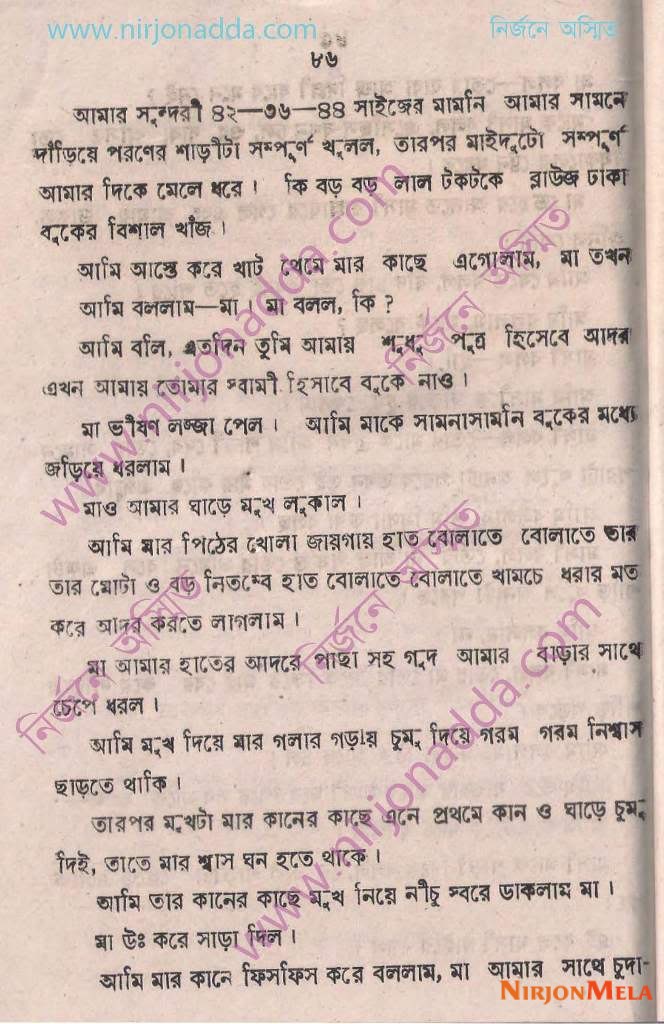 www.nirjonadda.com নির্জনে অস্মিত
৮৬
আমার সুন্দরী ৪২—৩৬—৪৪ সাইজের মামনি আমার সামনে
দাঁড়িয়ে পরণের শাড়ীটা সম্পূর্ণ খুলল, তারপর মাইদুটো সম্পূর্ণ
আমার দিকে মেলে ধরে। কি বড় বড় লাল টকটকে ব্লাউজ ঢাকা
বুকের বিশাল খাঁজ।
আমি আস্তে করে খাট থেমে মার কাছে এগোলাম, মা তখন
আমি বললাম—মা। মা বলল, কি ?
আমি বলি, এতদিন তুমি আমায় শুধু পুত্র হিসেবে আদর
এখন আমায় তোমার স্বামী হিসাবে বুকে নাও।
মা ভীষণ লজ্জা পেল। আমি মাকে সামনাসামনি বুকের মধ্যে
জড়িয়ে ধরলাম।
মাও আমার ঘাড়ে মুখ লুকাল।
আমি মার পিঠের খোলা জায়গায় হাত বোলাতে বোলাতে তার
তার মোটা ও বড় নিতম্বে হাত বোলাতে বোলাতে খামচে ধরার মত
করে আদর করতে লাগলাম।
মা আমার হাতের আদরে পাছা সহ গুদ আমার বাড়ার সাথে
চেপে ধরল।
আমি মুখ দিয়ে মার গলার গড়ায় চুমু দিয়ে গরম গরম নিশ্বাস
ছাড়তে থাকি।
তারপর মুখটা মার কানের কাছে এনে প্রথমে কান ও ঘাড়ে চুমু
দিই, তাতে মার শ্বাস ঘন হতে থাকে।
আমি তার কানের কাছে মুখ নিয়ে নীচু স্বরে ডাকলাম মা।
মা উঃ করে সাড়া দিল।
আমি মার কানে ফিসফিস করে বললাম, মা আমার সাথে চুদা-
NIRJONMELA
www.nirjonadda.com
নির্জনে অস্মিত
নির্জনে অস্মিত
নির্জনে অস্মিত
www.nirjonadda.com